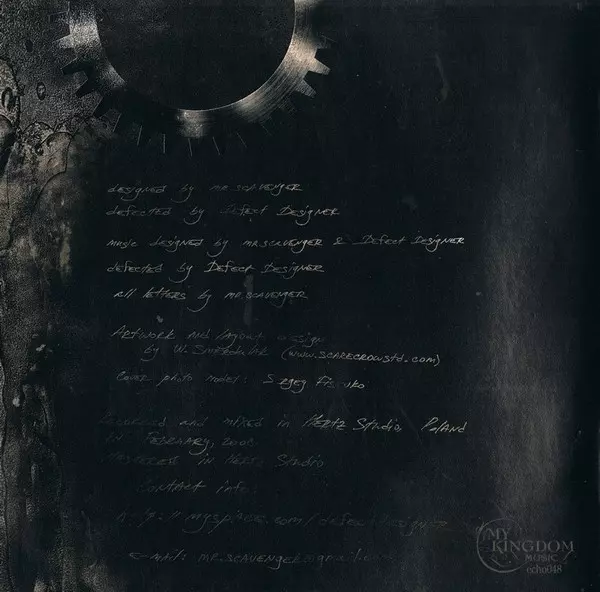 designed by mr.scavenger
defected by Defect Designer
music designed by mr.scavenger & Defect Designer
defected by Defect Designer
all letters by mr.scavenger
Artwork and layout design
by W. (www.scarecrowstd.com)
Cover photo model: Sergey
Recorded and mixed in Hertz Studio, Poland
in February,
Mastered in Hertz Studio
Contact info:
http://myspace.com/defectdesigner
e-mail: mr.scavenger@gmail.com
MY
KINGDOM
MUSIC
echo048